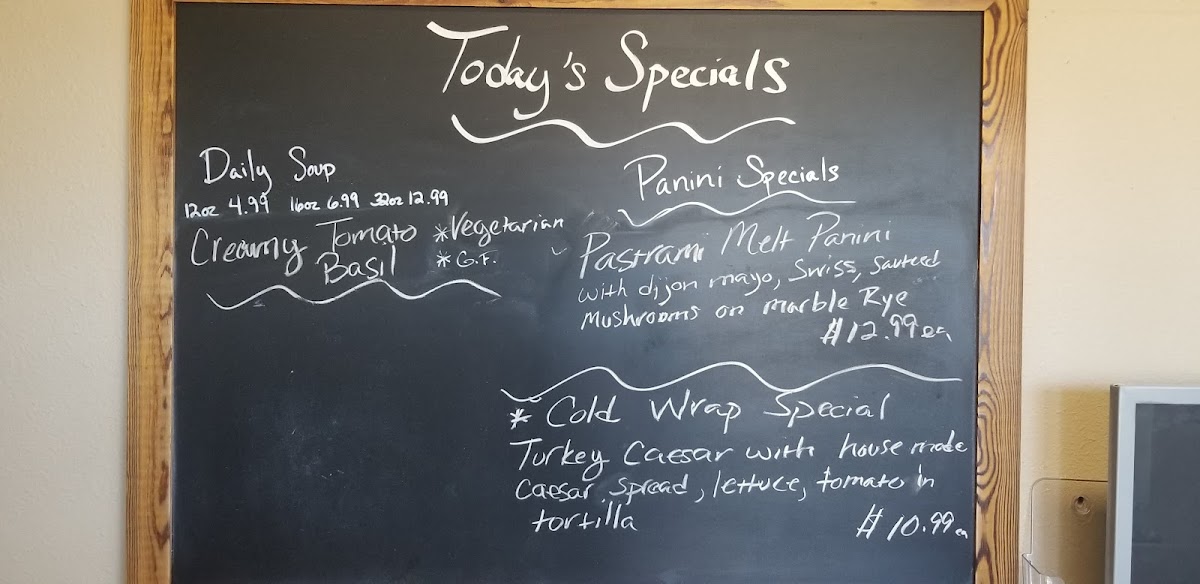 Today's Specials
Daily Soup
12oz 4.99 16oz 6.99 32oz 12.99
Creamy Tomato *Vegetarian
Basil *G.F.
Panini Specials
Pastrami Melt Panini
with dijon mayo, Swiss, Sauteed
Mushrooms on marble Rye
$12.99 ea
* Cold Wrap Special
Turkey Caesar with house made
Caesar spread, lettuce, tomato in
tortilla
$10.99 ea